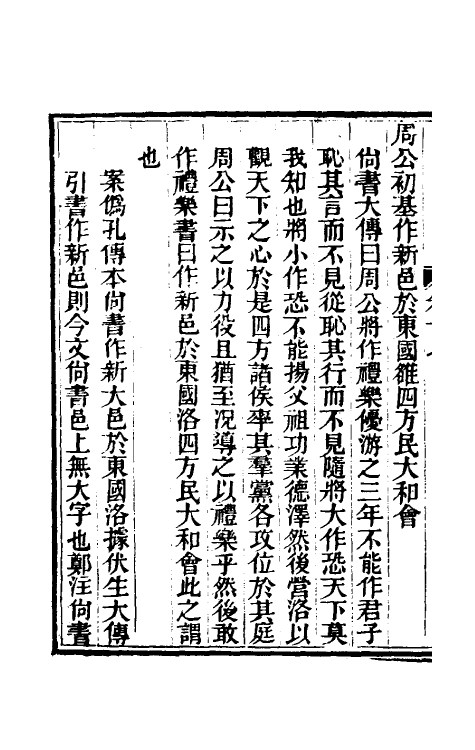 周公初基作新邑於東國雒四方民大和會
尙書大傳曰周公將作禮樂優游之三年不能作君子
恥其言而不見從恥其行而不見隨將大作恐天下莫
我知也將小作恐不能揚父祖功業德澤然後營洛以
觀天下之心於是四方諸侯率其羣黨各攻位於其庭
周公曰示之以力役且猶至况導之以禮樂乎然後敢
作禮樂書曰作新邑於東國洛四方民大和會此之謂
也
案僞孔傳本尙書作新大邑於東國洛據伏生大傳
引書作新邑則今文尙書邑上無大字也鄭注尙書